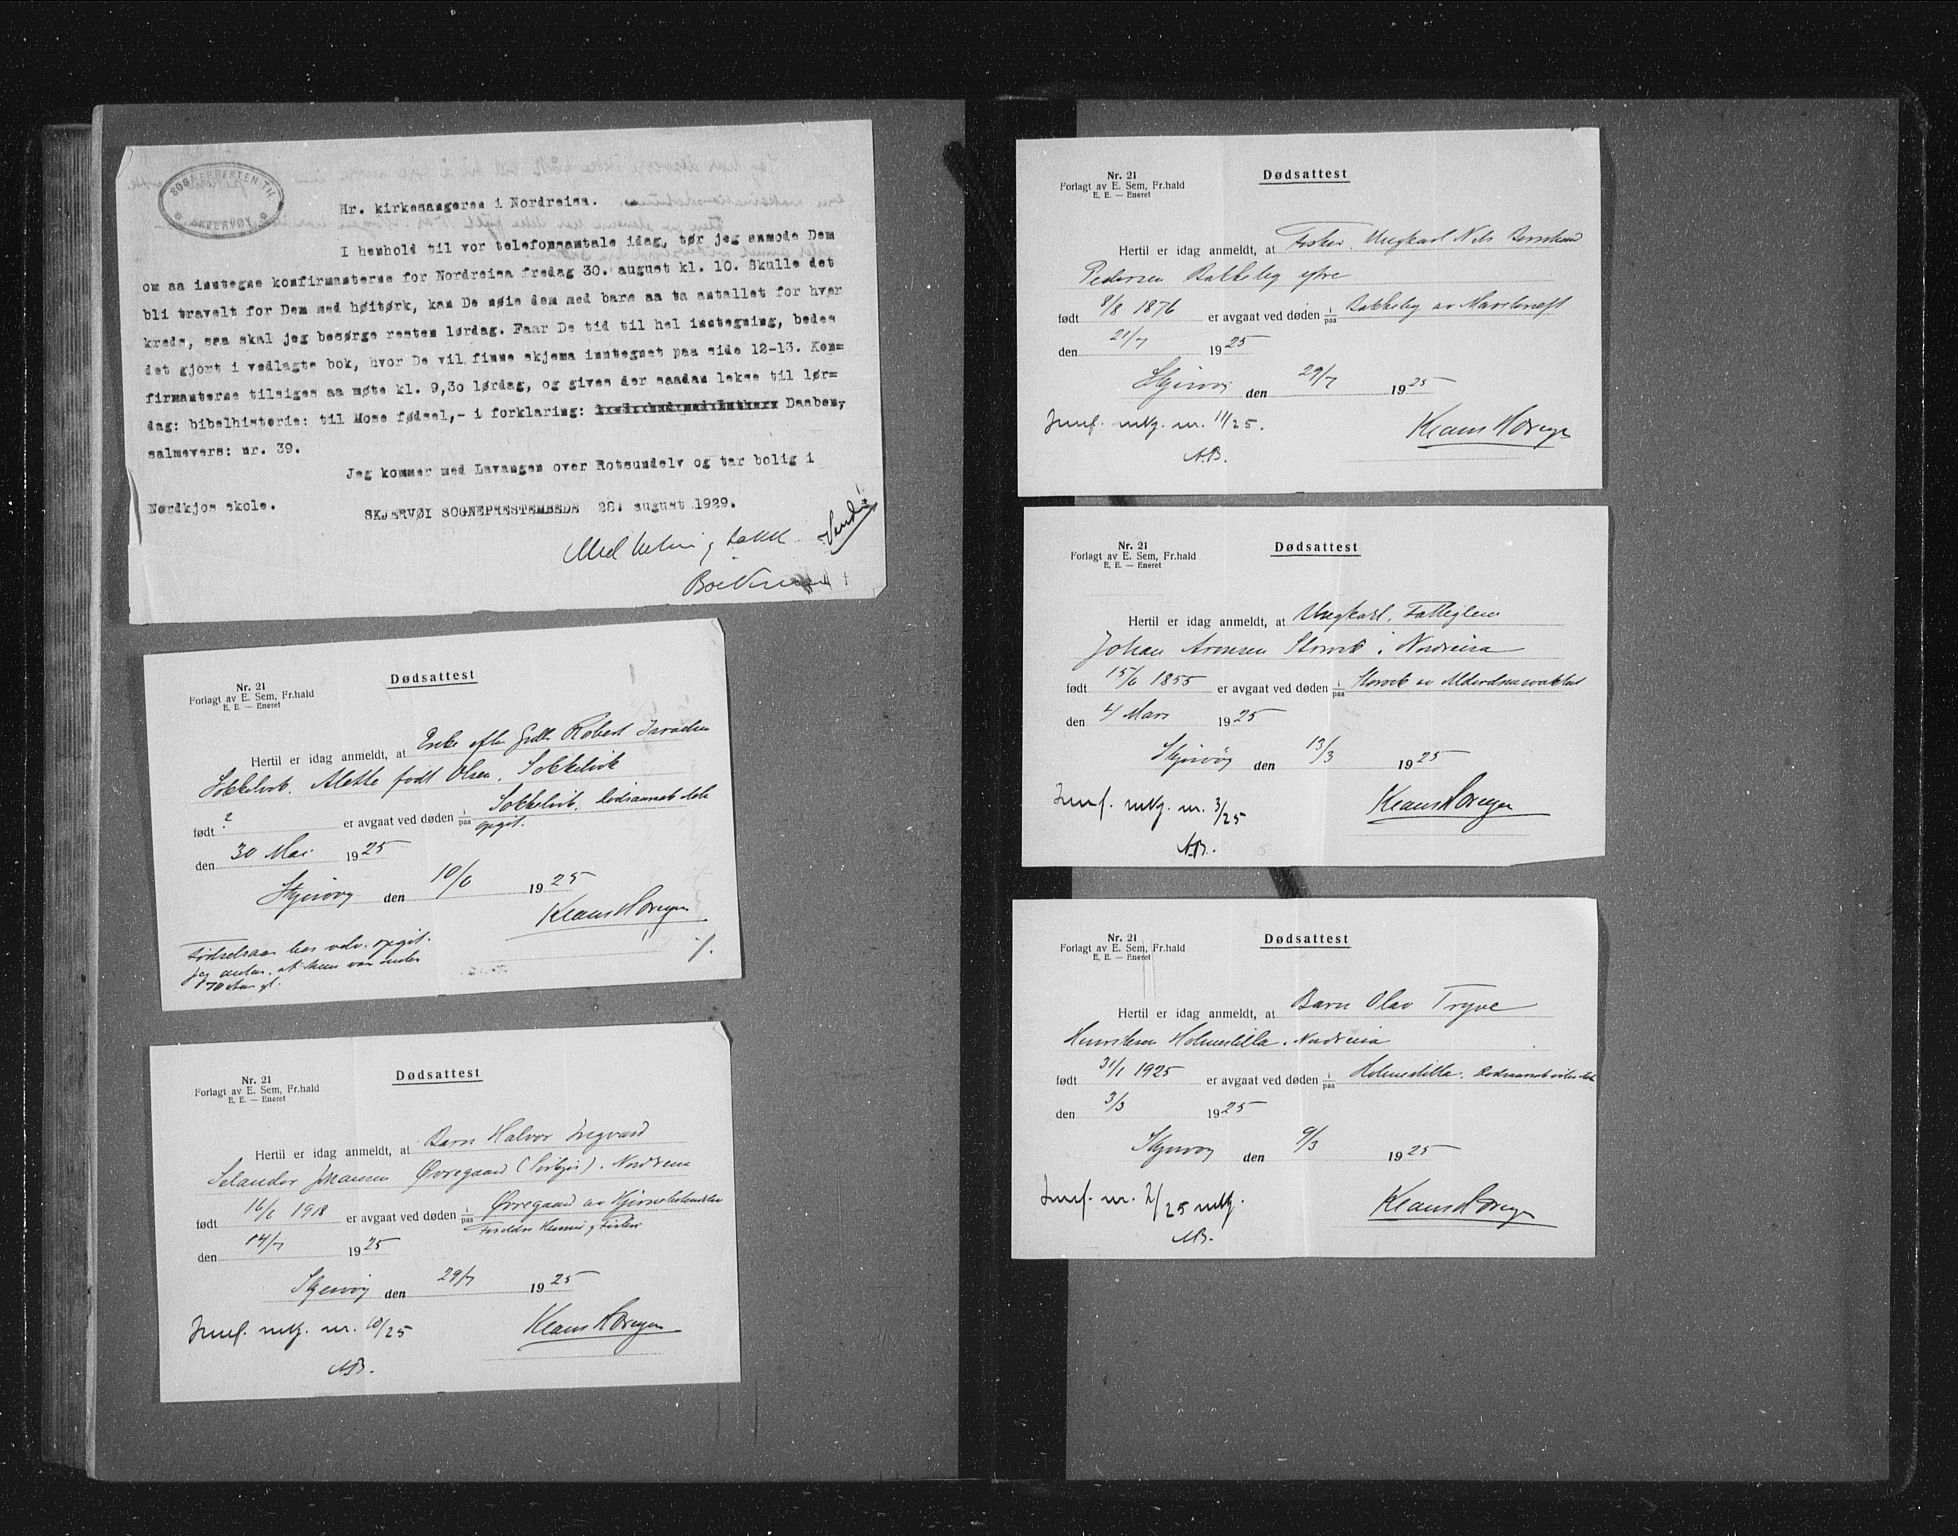 SOGNEPRESTEN TIL
SKJERVØY
Hr. kirkesangeren i Nordreisa.
I henhold til vor telefonsamtale idag, tør jeg anmode Dem
om aa inntegne konfirmanterne for Nordreisa fredag 30. august kl. 10. Skulle det
bli travelt for Dem med høitørk, kan De nøie dem med bare aa ta antallet for hver
kreds, saa skal jeg besørge resten lørdag. Faar De tid til hel inntegning, bedes
det gjort i vedlagte bok, hvor De vil finne skjema inntegnet paa side 12-13. Kon=
firmanterne tilsiges aa møte kl. 9,30 lørdag, og gives der saadan lekse til lør=
dag: bibelhistorie: til Mose fødsel,- i forklaring: Daaben,
salmevers: nr. 39.
Jeg kommer med Lavangen over Rotsundelv og tar bolig i
Nordkjos skole.
SKJERVØI SOGNEPRESTEMBEDE 28. august 1929.
Vend!
Med hilsen og takk
Nr. 21
Forlagt av E. Sem, Fr.hald
E. E. — Eneret
Dødsattest
Hertil er idag anmeldt, at Enke efter Gdbr. Robert Israelsen
Sokkelvik, Alette født Olsen, Sokkelvik
født ? er avgaat ved døden i/paa Sokkelvik. Dødsaarsak ikke
opgit.
den 30 Mai 1925
Skjervøy den 10/6 1925
Klaus Norvegen
Fødselsaar blev opgit.
jeg antar, at hun var under
70 Aar gl.
Nr. 21
Forlagt av E. Sem, Fr.hald
E. E. — Eneret
Dødsattest
Hertil er idag anmeldt, at Barn Halvor Ingvard
Selander Johansen Øvregaard (Sørkjos). Nordreisa
født 16/6 1918 er avgaat ved døden i/paa Øvregaard av Hjernebetændelse
Foreldre
den 14/7 1925
Skjervøy den 29/7 1925
Jmnf. mtg. nr. 10/25
Klaus Norvegen
AB.
Nr. 21
Forlagt av E. Sem, Fr.hald
E. E. — Eneret
Dødsattest
Hertil er idag anmeldt, at Fisker, Ungkarl Nils Berntsend
Pedersen Bakkeby ytre
født 8/8 1876 er avgaat ved døden i/paa Bakkeby av
den 21/7 1925
Skjervøy den 29/7 1925
Jmnf. mtg. nr. 11/25.
Klaus Norvegen
AB.
Nr. 21
Forlagt av E. Sem, Fr.hald
E. E. — Eneret
Dødsattest
Hertil er idag anmeldt, at Ungkarl, Fattiglem
Johan Aronsen Storvik i Nordreisa
født 15/6 1855 er avgaat ved døden i/paa Storvik av Alderdomssvakhet
den 4/ Mars 1925
Skjervøy den 13/3 1925
Jmnf. mtg. nr. 3/25
Klaus Norvegen
AB.
Nr. 21
Forlagt av E. Sem, Fr.hald
E. E. — Eneret
Dødsattest
Hertil er idag anmeldt, at Barn Olav Trygve
Henriksen Holmestilla, Nordreisa
født 31/1 1925 er avgaat ved døden i/paa Holmestilla. Dødsaarsak vites ikke
den 3/3 1925
Skjervøy den 9/3 1925
Jmnf. nr. 2/25 mtg.
Klaus Norvegen
AB.